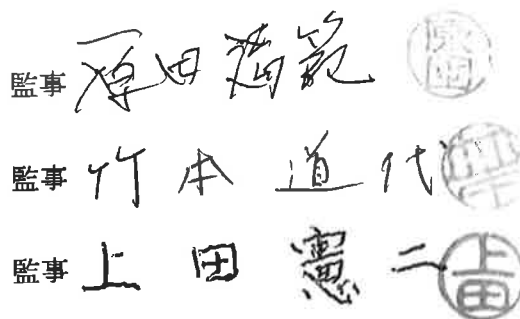 監事 原田満範 原田
監事 竹本道代
監事 上田憲二 上田